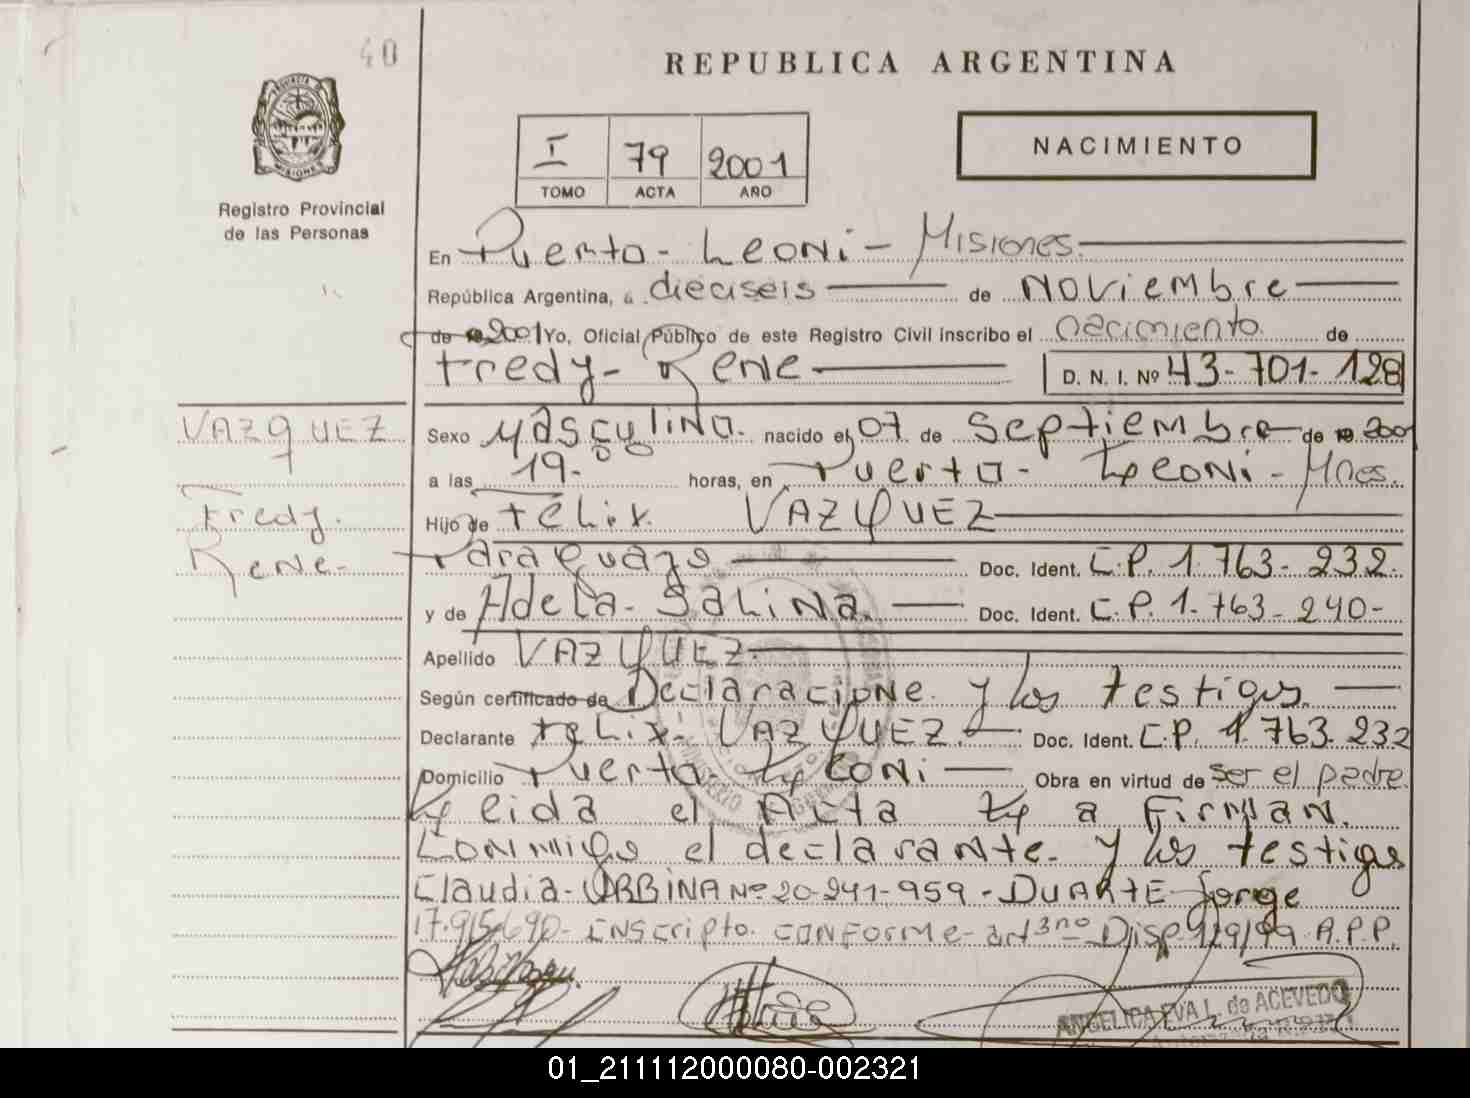 40
REPUBLICA ARGENTINA
MISIONES
I 79 2001
TOMO ACTA AÑO
NACIMIENTO
Registro Provincial
de las Personas
En Puerto-Leoni-Misiones.
República Argentina, a dieciseis de Noviembre
de 2001 Yo, Oficial Público de este Registro Civil inscribo el nacimiento de
Fredy-Rene D. N. I. Nº 43-701-128
VAZQUEZ
Fredy.
Rene-
Sexo Masculino. nacido el 07 de Septiembre de 2001
a las 19- horas, en Puerto-Leoni-Mnes.
Hijo de Felix. VAZQUEZ
Paraguayo Doc. Ident. C.P. 1.763-232.
y de Adela-Salina. Doc. Ident. C.P.1-763-240-
Apellido VAZQUEZ-
Según certificado de Declaracione y los testigos.
Declarante Felix-VAZQUEZ. Doc. Ident. C.P. 1.763.232
Domicilio Puerto Leoni Obra en virtud de ser el padre.
Leida el Acta La Firman.
Conmigo el declarante-y los testigos
Claudia-URBINA Nº 20-241-959-DUARTE Jorge
17.915.690-INscripto. CONFORME-art 3no Disp 929/99 A.P.P.
ANGELICA EVA L. de ACEVEDO
01_211112000080-002321